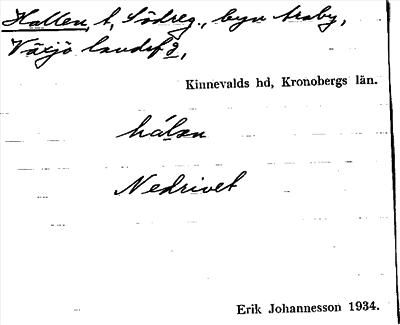 Hallen, t, Södreg., byn Araby,
Växjö landsf 2,
Kinnevalds hd, Kronobergs län.
hálən
Nedrivet
Erik Johannesson 1934.